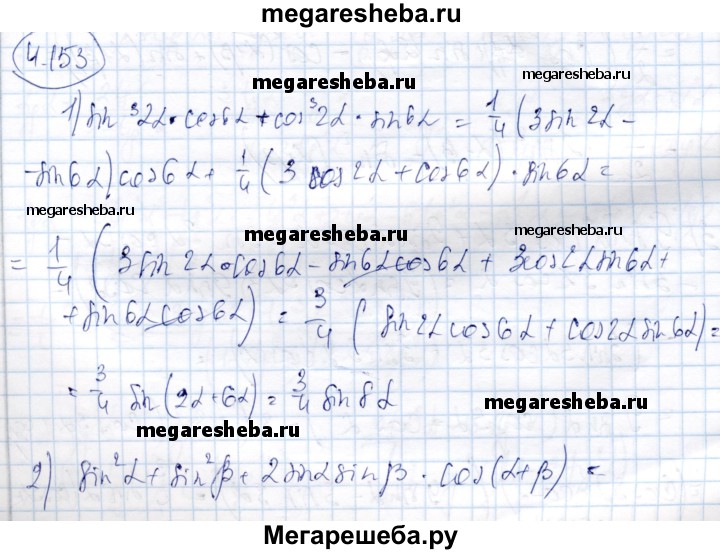 megaresheba.ru
4.153
megaresheba.ru
megaresheba.ru
1) sin³2α · cos6α + cos³2α · sin6α = 1/4 (3sin2α -
- sin6α) cos6α + 1/4 (3 cos2α + cos6α) · sin6α =
megaresheba.ru
megaresheba.ru
megaresheba.ru
= 1/4 (3sin2α·cos6α - sin6αcos6α + 3cos2αsin6α +
+ sin6αcos6α) = 3/4 (sin2αcos6α + cos2αsin6α) =
megaresheba.ru
= 3/4 sin(2α+6α) = 3/4 sin8α
megaresheba.ru
megaresheba.ru
2) sin²α + sin²β + 2sinαsinβ · cos(α+β) =
Мегарешеба.ру